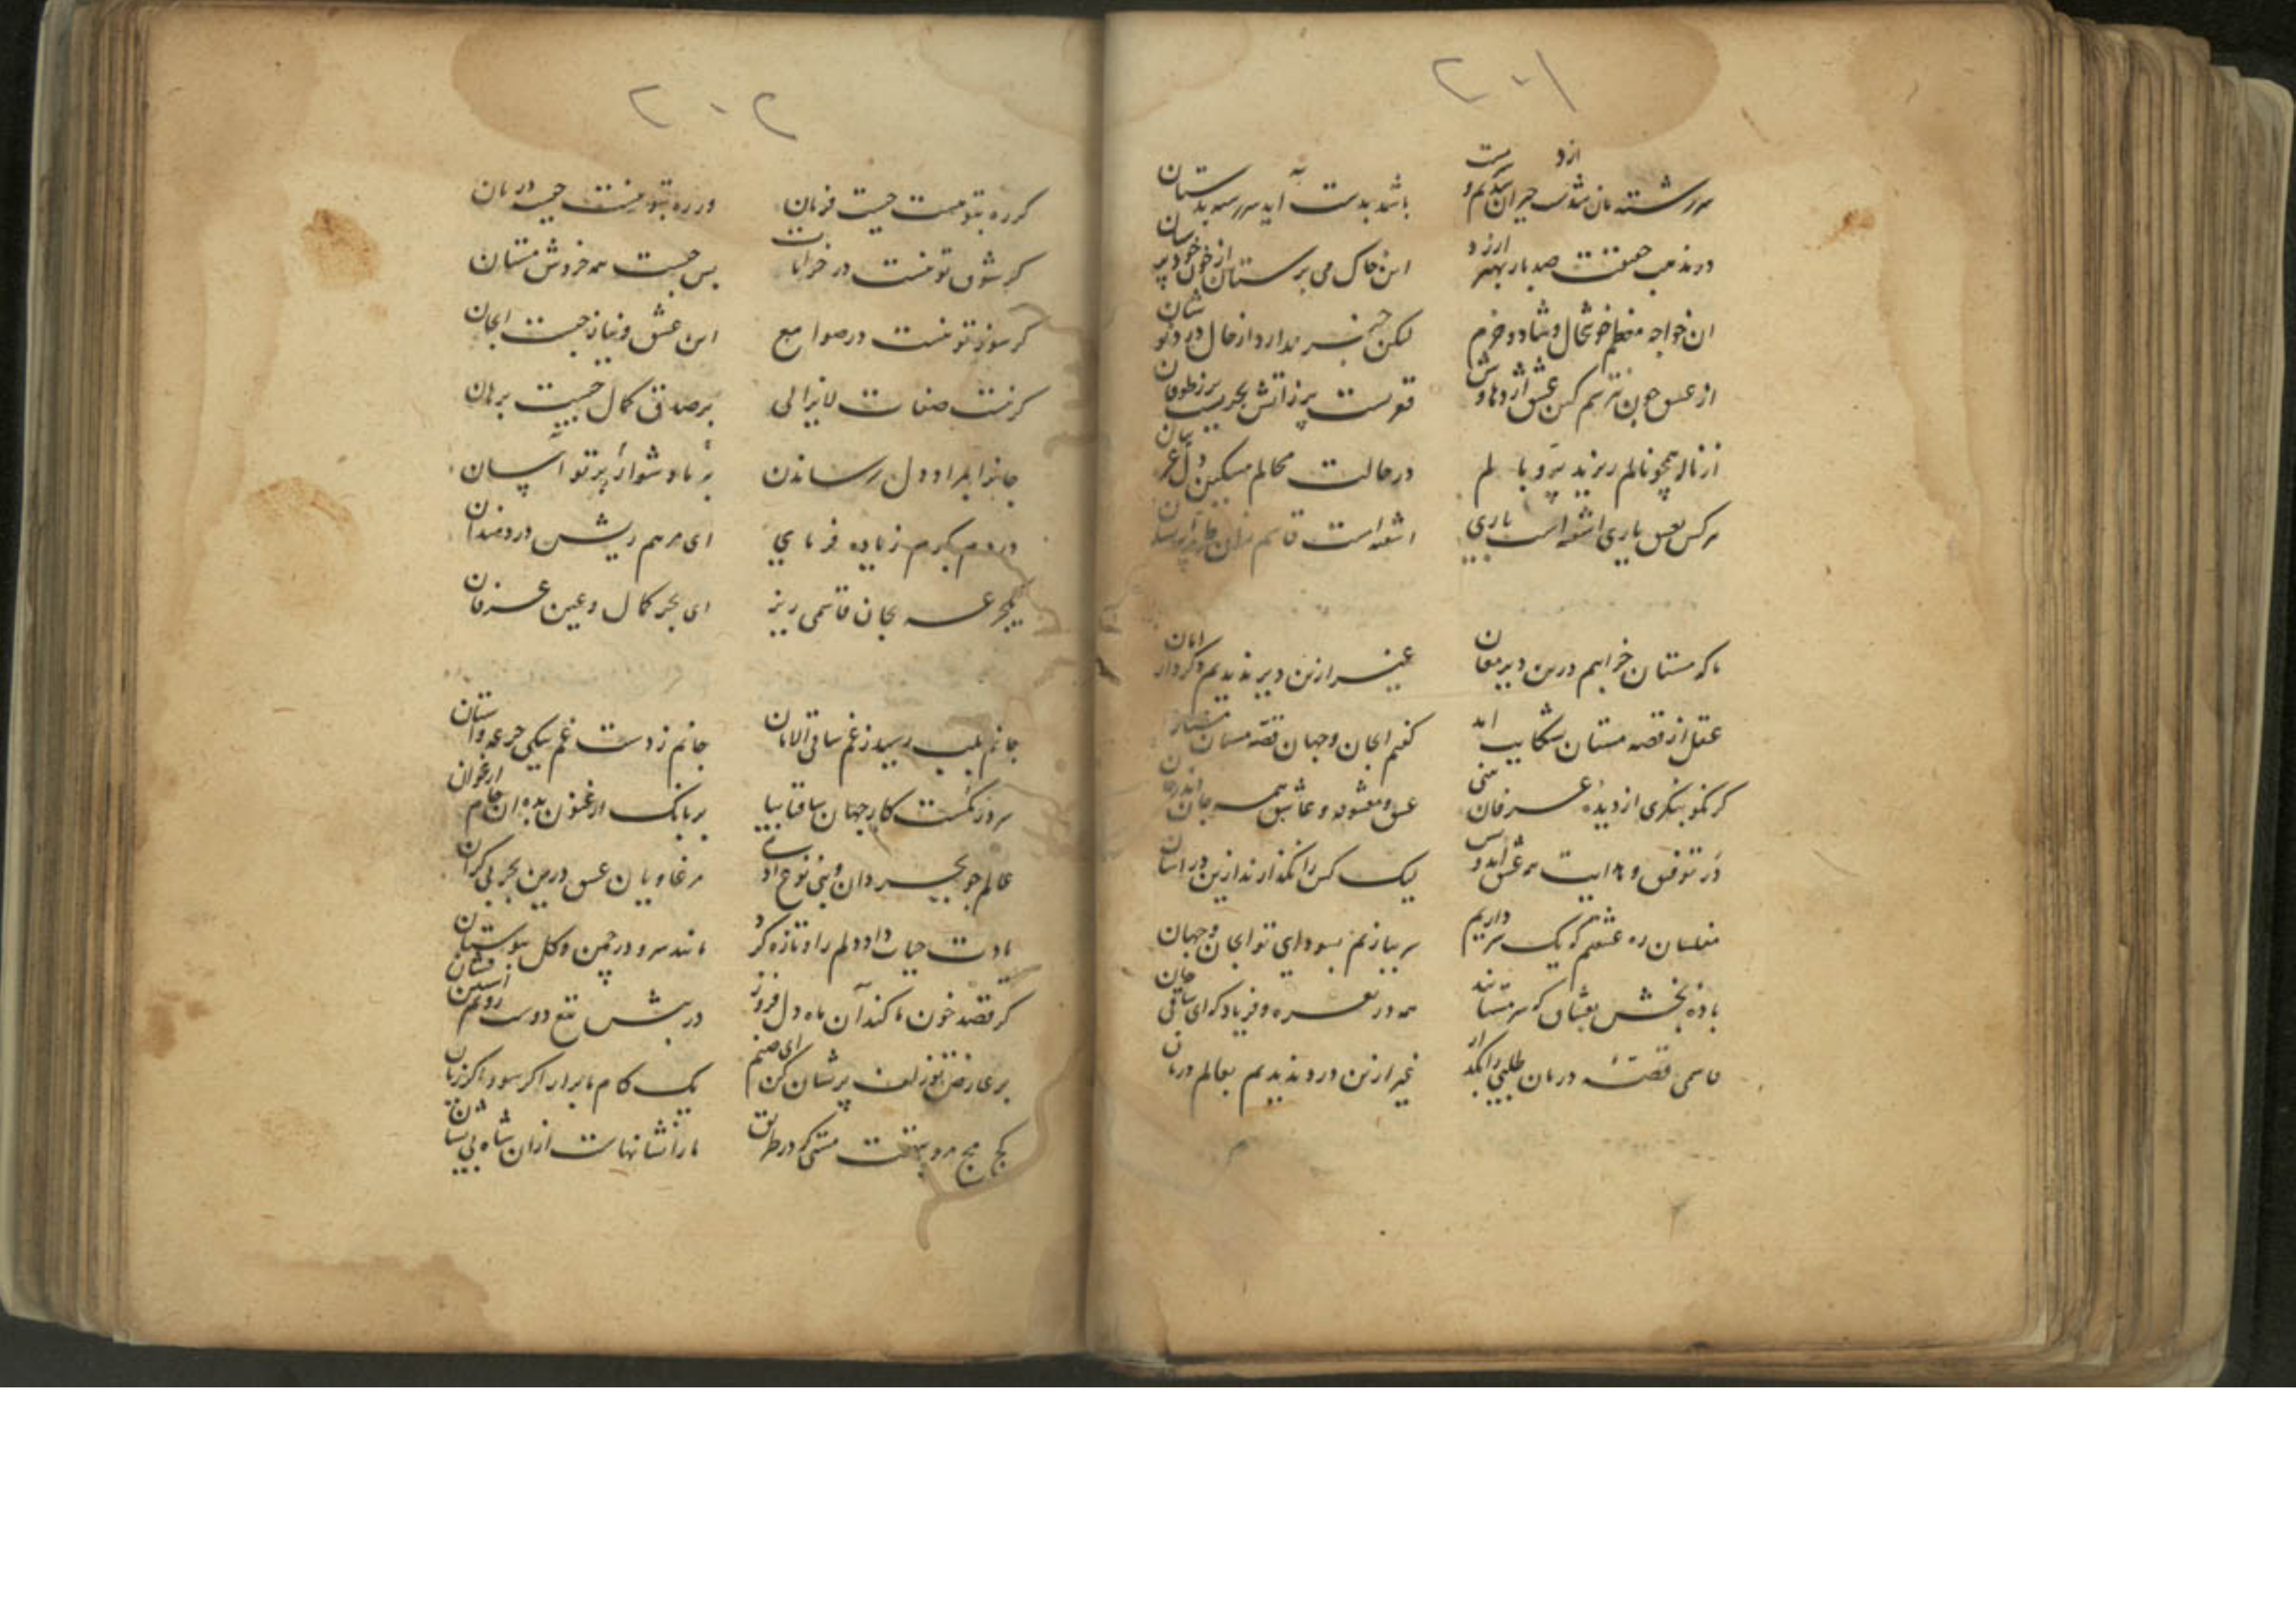 ۲۰۱
سررشته مان شد از دست حیران شدیم و
باشد بدست آید سررشته بدستان
در مذهب حقیقت صد بار بهتر ارزد
این خاک می پرستان از خون خودپرستان
ان خواجه معظم خوشحال و شاد و خرم
لیکن خبر ندارد از حال دردنوشان
از عشق چون نترسم کین عشق اژدهاوش
از ناله همچو نالم ریزید پر و بالم
در حالت محالم مسکین دل
هرکس بعشق یاری اشفته است باری
اشفته است قاسم
ما که مستان خرابیم درین دیر مغان
غیر ازین دیر ندیدیم دگر دار امان
عقل از قصه مستان بشکایت امد
گفتم ایجان و جهان قصه مستان مستان
گر نکو بنگری از دیده عرفان بینی
عشق و معشوقه و عاشق همه جان اندر جان
در توفیق و هدایت همه عشق امد و بس
لیک کس را نگذارند ازین در اسان
مفلسان ره عشقیم که یک سر داریم
سر ببازیم بسودای تو ایجان و جهان
باده بخش بعشاق که سرمستانند
همه در نعره و فریاد که ای ساقی جان
قاسمی قصه درمان طلبی را بگذار
غیر ازین درد ندیدیم بعالم درمان
۲۰۲
گر ره بتو نیست چیست فرمان
ور ره بتو نیست چیست درمان
گر شوق تو نیست در خرابات
پس چیست همه خروش مستان
گر سوز تو نیست در صوامع
این عشق و نیاز چیست ایجان
گر نیست صفات لایزالی
بر صدق کمال چیست برهان
جانرا بمراد دل رساندن
بر ما دشوار بر تو آسان
دردم بکرم زیاده فرمای
ای مرهم ریش دردمندان
یکجرعه بجان قاسمی ریز
ای بحر کمال و عین عرفان
جانم بلب رسید ز غم ساقی الامان
جانم ز دست غم بیکی جرعه واستان
هر روز نیست کار جهان ساقیا بیا
بر بانک ارغنون بده ان جام ارغوان
عالم چو بحر دان و بنی نوع
مرغاویان عشق درین بحر بی کران
یادت حیات داد دلم را و تازه کرد
مانند سرو در چمن و گل ببوستان
گر قصد خون ما کند آن ماه دل فروز
در پیش تیغ دوست رویم استین فشان
بر عارض تو زلف پریشان کن ای صنم
یک کام ما برار اگر سود اگر زیان
کج مج مرو بتهمت مستی که در طریق
ما را نشانهاست ازان شاه بی نشان